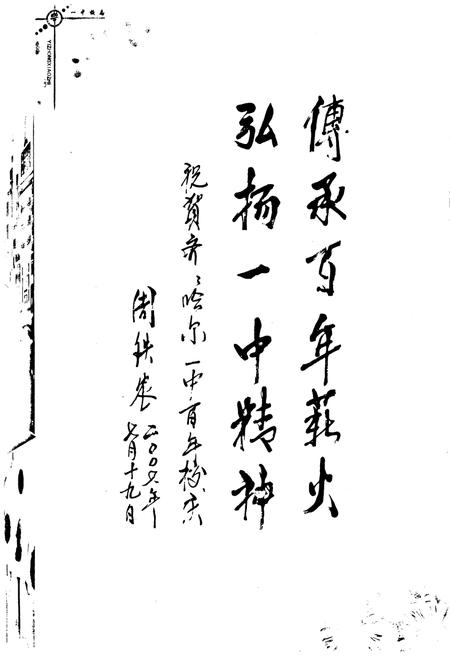 一中校志
YIZHONGXIAOZHI
傳承百年薪火
弘扬一中精神
祝賀齐々哈尔一中百年校庆
周铁农
二〇〇六年
七月十九日